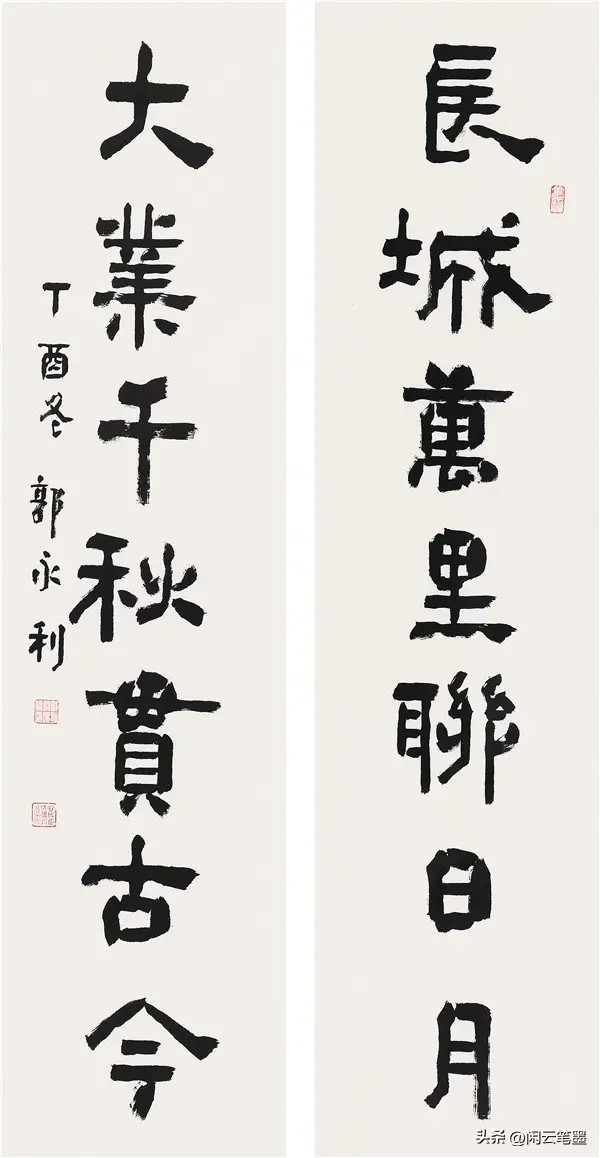 長城萬里聯日月
大業千秋貫古今
丁酉冬 郭永利
头条 @闲云笔墨